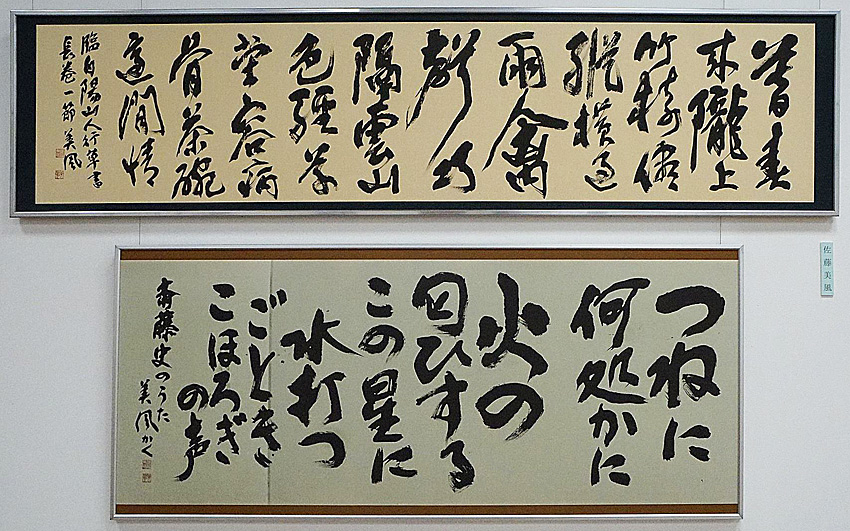 春
来隴上
竹樹儘
縱横過
雨禽
聲巧
隔雲山
色輕草
堂容病
骨茶碗
適閒情
臨白陽山人行草書
長巻一節 美風
佐藤美風
つねに
何処かに
火の
匂ひする
この星に
水打つ
ごとき
こほろぎ
の声
斎藤史のうた
美風かく